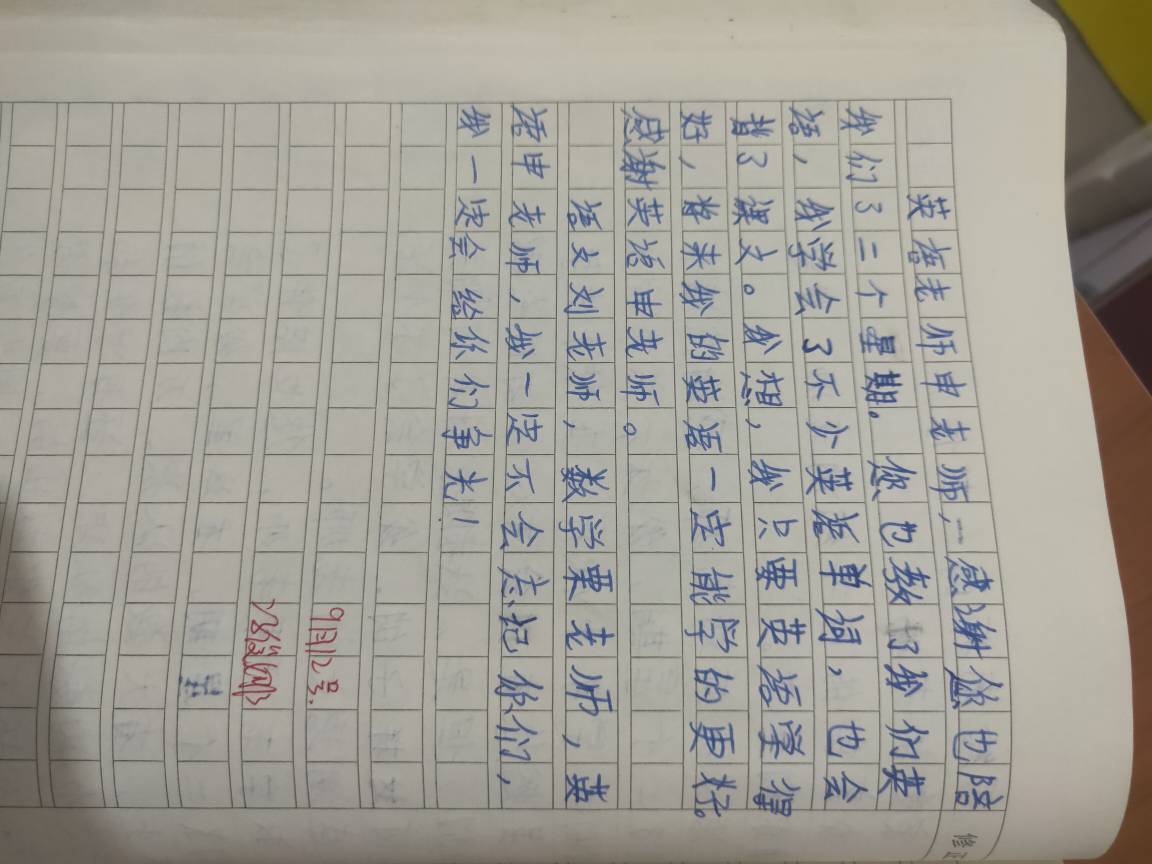 英语老师申老师,感谢您也陪
我们了二个星期。您也教了我们英
语,我学会了不少英语单词,也会
背了课文。我想,我只要英语学得
好,将来我的英语一定能学的更好。
感谢英语申老师。
语文刘老师,数学栗老师,英
语申老师,我一定不会忘记你们,
我一定会给你们争光!
9月12号.